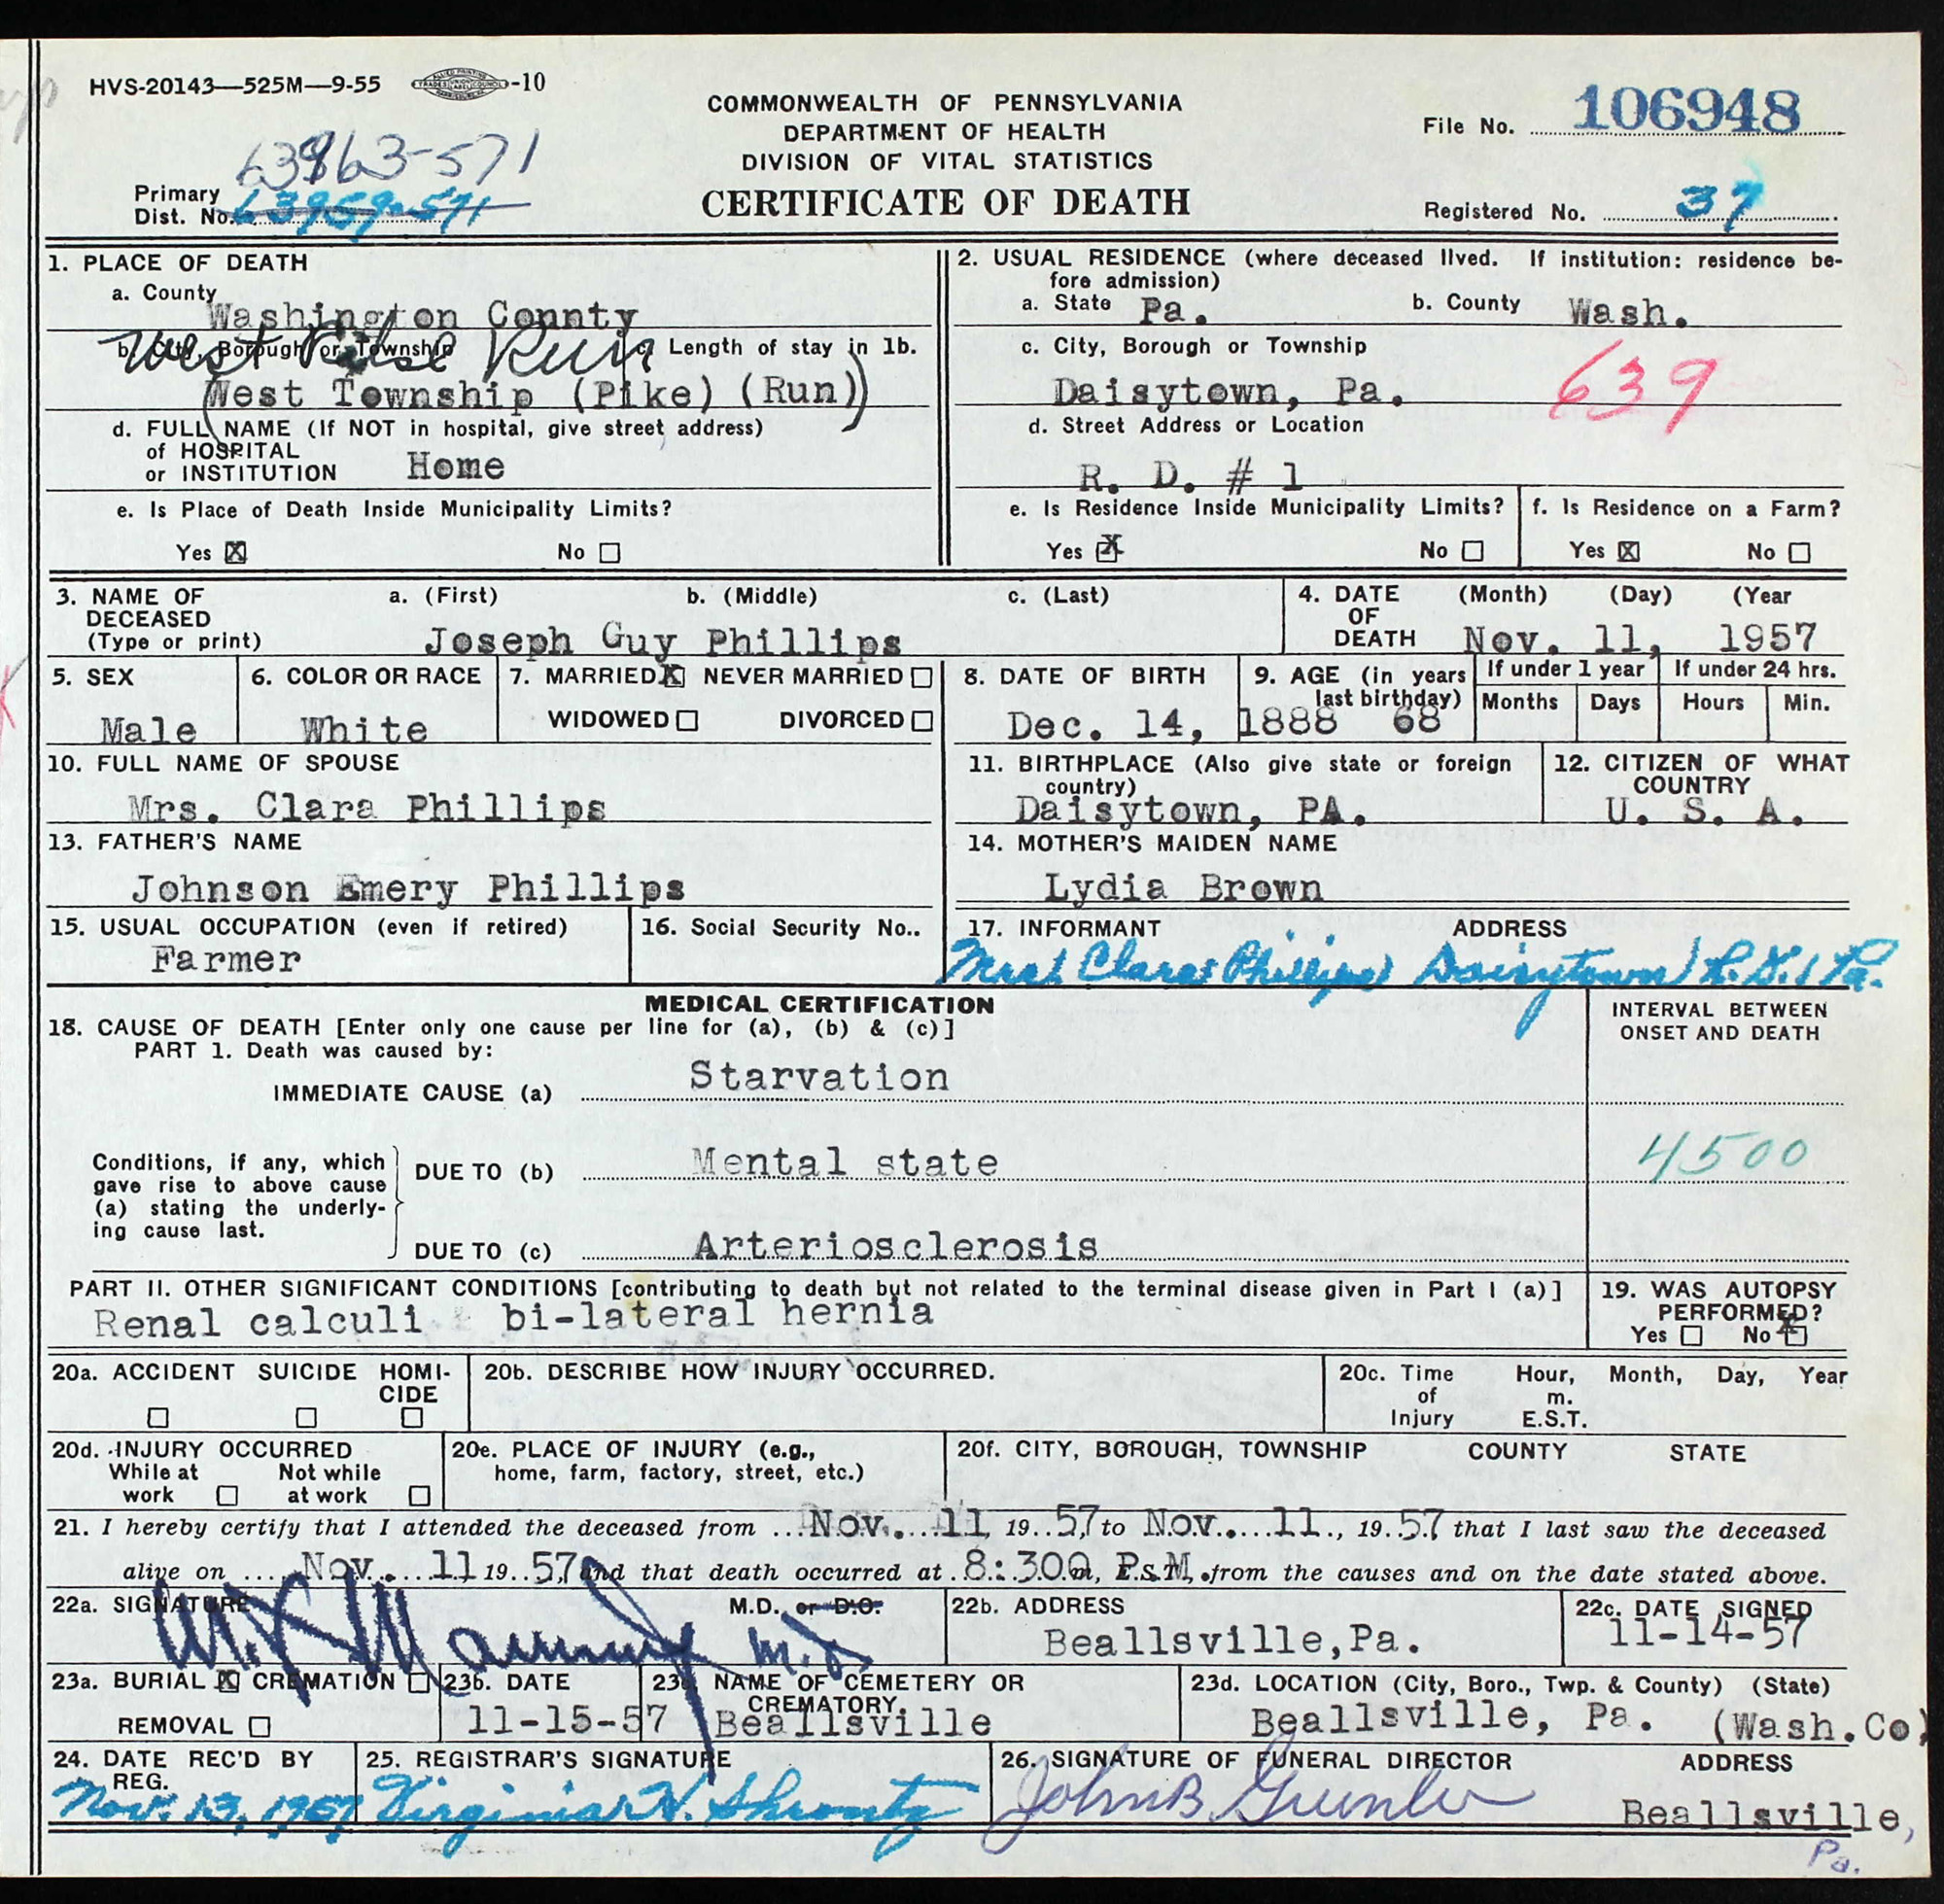 HVS-20143—525M—9-55 -10
COMMONWEALTH OF PENNSYLVANIA
DEPARTMENT OF HEALTH
DIVISION OF VITAL STATISTICS
CERTIFICATE OF DEATH
File No. 106948
63963-571
Primary
Dist. No. 63959-571
Registered No. 37
1. PLACE OF DEATH
a. County
Washington Connty
b. City, Borough or Township c. Length of stay in 1b.
West Pike Run
West Township (Pike) (Run)
d. FULL NAME (If NOT in hospital, give street address)
of HOSPITAL
or INSTITUTION Home
e. Is Place of Death Inside Municipality Limits?
Yes ☒ No ☐
2. USUAL RESIDENCE (where deceased lived. If institution: residence be-
fore admission)
a. State Pa. b. County Wash.
c. City, Borough or Township
Daisytown, Pa. 639
d. Street Address or Location
R. D. # 1
e. Is Residence Inside Municipality Limits? f. Is Residence on a Farm?
Yes ☒ No ☐ Yes ☒ No ☐
3. NAME OF a. (First) b. (Middle) c. (Last)
DECEASED
(Type or print) Joseph Guy Phillips
4. DATE (Month) (Day) (Year
OF
DEATH Nov. 11, 1957
5. SEX
Male
6. COLOR OR RACE
White
7. MARRIED ☒ NEVER MARRIED ☐
WIDOWED ☐ DIVORCED ☐
8. DATE OF BIRTH
Dec. 14, 1888
9. AGE (in years
last birthday)
68
If under 1 year If under 24 hrs.
Months Days Hours Min.
10. FULL NAME OF SPOUSE
Mrs. Clara Phillips
11. BIRTHPLACE (Also give state or foreign
country)
Daisytown, PA.
12. CITIZEN OF WHAT
COUNTRY
U. S. A.
13. FATHER'S NAME
Johnson Emery Phillips
14. MOTHER'S MAIDEN NAME
Lydia Brown
15. USUAL OCCUPATION (even if retired)
Farmer
16. Social Security No..
17. INFORMANT ADDRESS
Mrs. Clara Phillips Daisytown R.D.1 Pa.
MEDICAL CERTIFICATION
18. CAUSE OF DEATH [Enter only one cause per line for (a), (b) & (c)]
PART 1. Death was caused by:
INTERVAL BETWEEN
ONSET AND DEATH
IMMEDIATE CAUSE (a) Starvation
Conditions, if any, which
gave rise to above cause
(a) stating the underly-
ing cause last.
DUE TO (b) Mental state
4500
DUE TO (c) Arteriosclerosis
PART II. OTHER SIGNIFICANT CONDITIONS [contributing to death but not related to the terminal disease given in Part I (a)]
Renal calculi bi-lateral hernia
19. WAS AUTOPSY
PERFORMED?
Yes ☐ No ☒
20a. ACCIDENT SUICIDE HOMI-
CIDE
☐ ☐ ☐
20b. DESCRIBE HOW INJURY OCCURRED.
20c. Time Hour, Month, Day, Year
of m.
Injury E.S.T.
20d. INJURY OCCURRED
While at Not while
work ☐ at work ☐
20e. PLACE OF INJURY (e.g.,
home, farm, factory, street, etc.)
20f. CITY, BOROUGH, TOWNSHIP COUNTY STATE
21. I hereby certify that I attended the deceased from Nov. 11, 19 57, to Nov. 11., 19 57 that I last saw the deceased
alive on Nov. 11 19 57 and that death occurred at 8:30 m, P.M. from the causes and on the date stated above.
22a. SIGNATURE M.D. or D.O.
M.D.
22b. ADDRESS
Beallsville, Pa.
22c. DATE SIGNED
11-14-57
23a. BURIAL ☒ CREMATION ☐
REMOVAL ☐
23b. DATE
11-15-57
23c. NAME OF CEMETERY OR
CREMATORY
Beallsville
23d. LOCATION (City, Boro., Twp. & County) (State)
Beallsville, Pa. (Wash.Co)
24. DATE REC'D BY
REG.
Nov. 13, 1957
25. REGISTRAR'S SIGNATURE
Virginia H. Shrontz
26. SIGNATURE OF FUNERAL DIRECTOR ADDRESS
John B. Greenlee
Beallsville,
Pa.